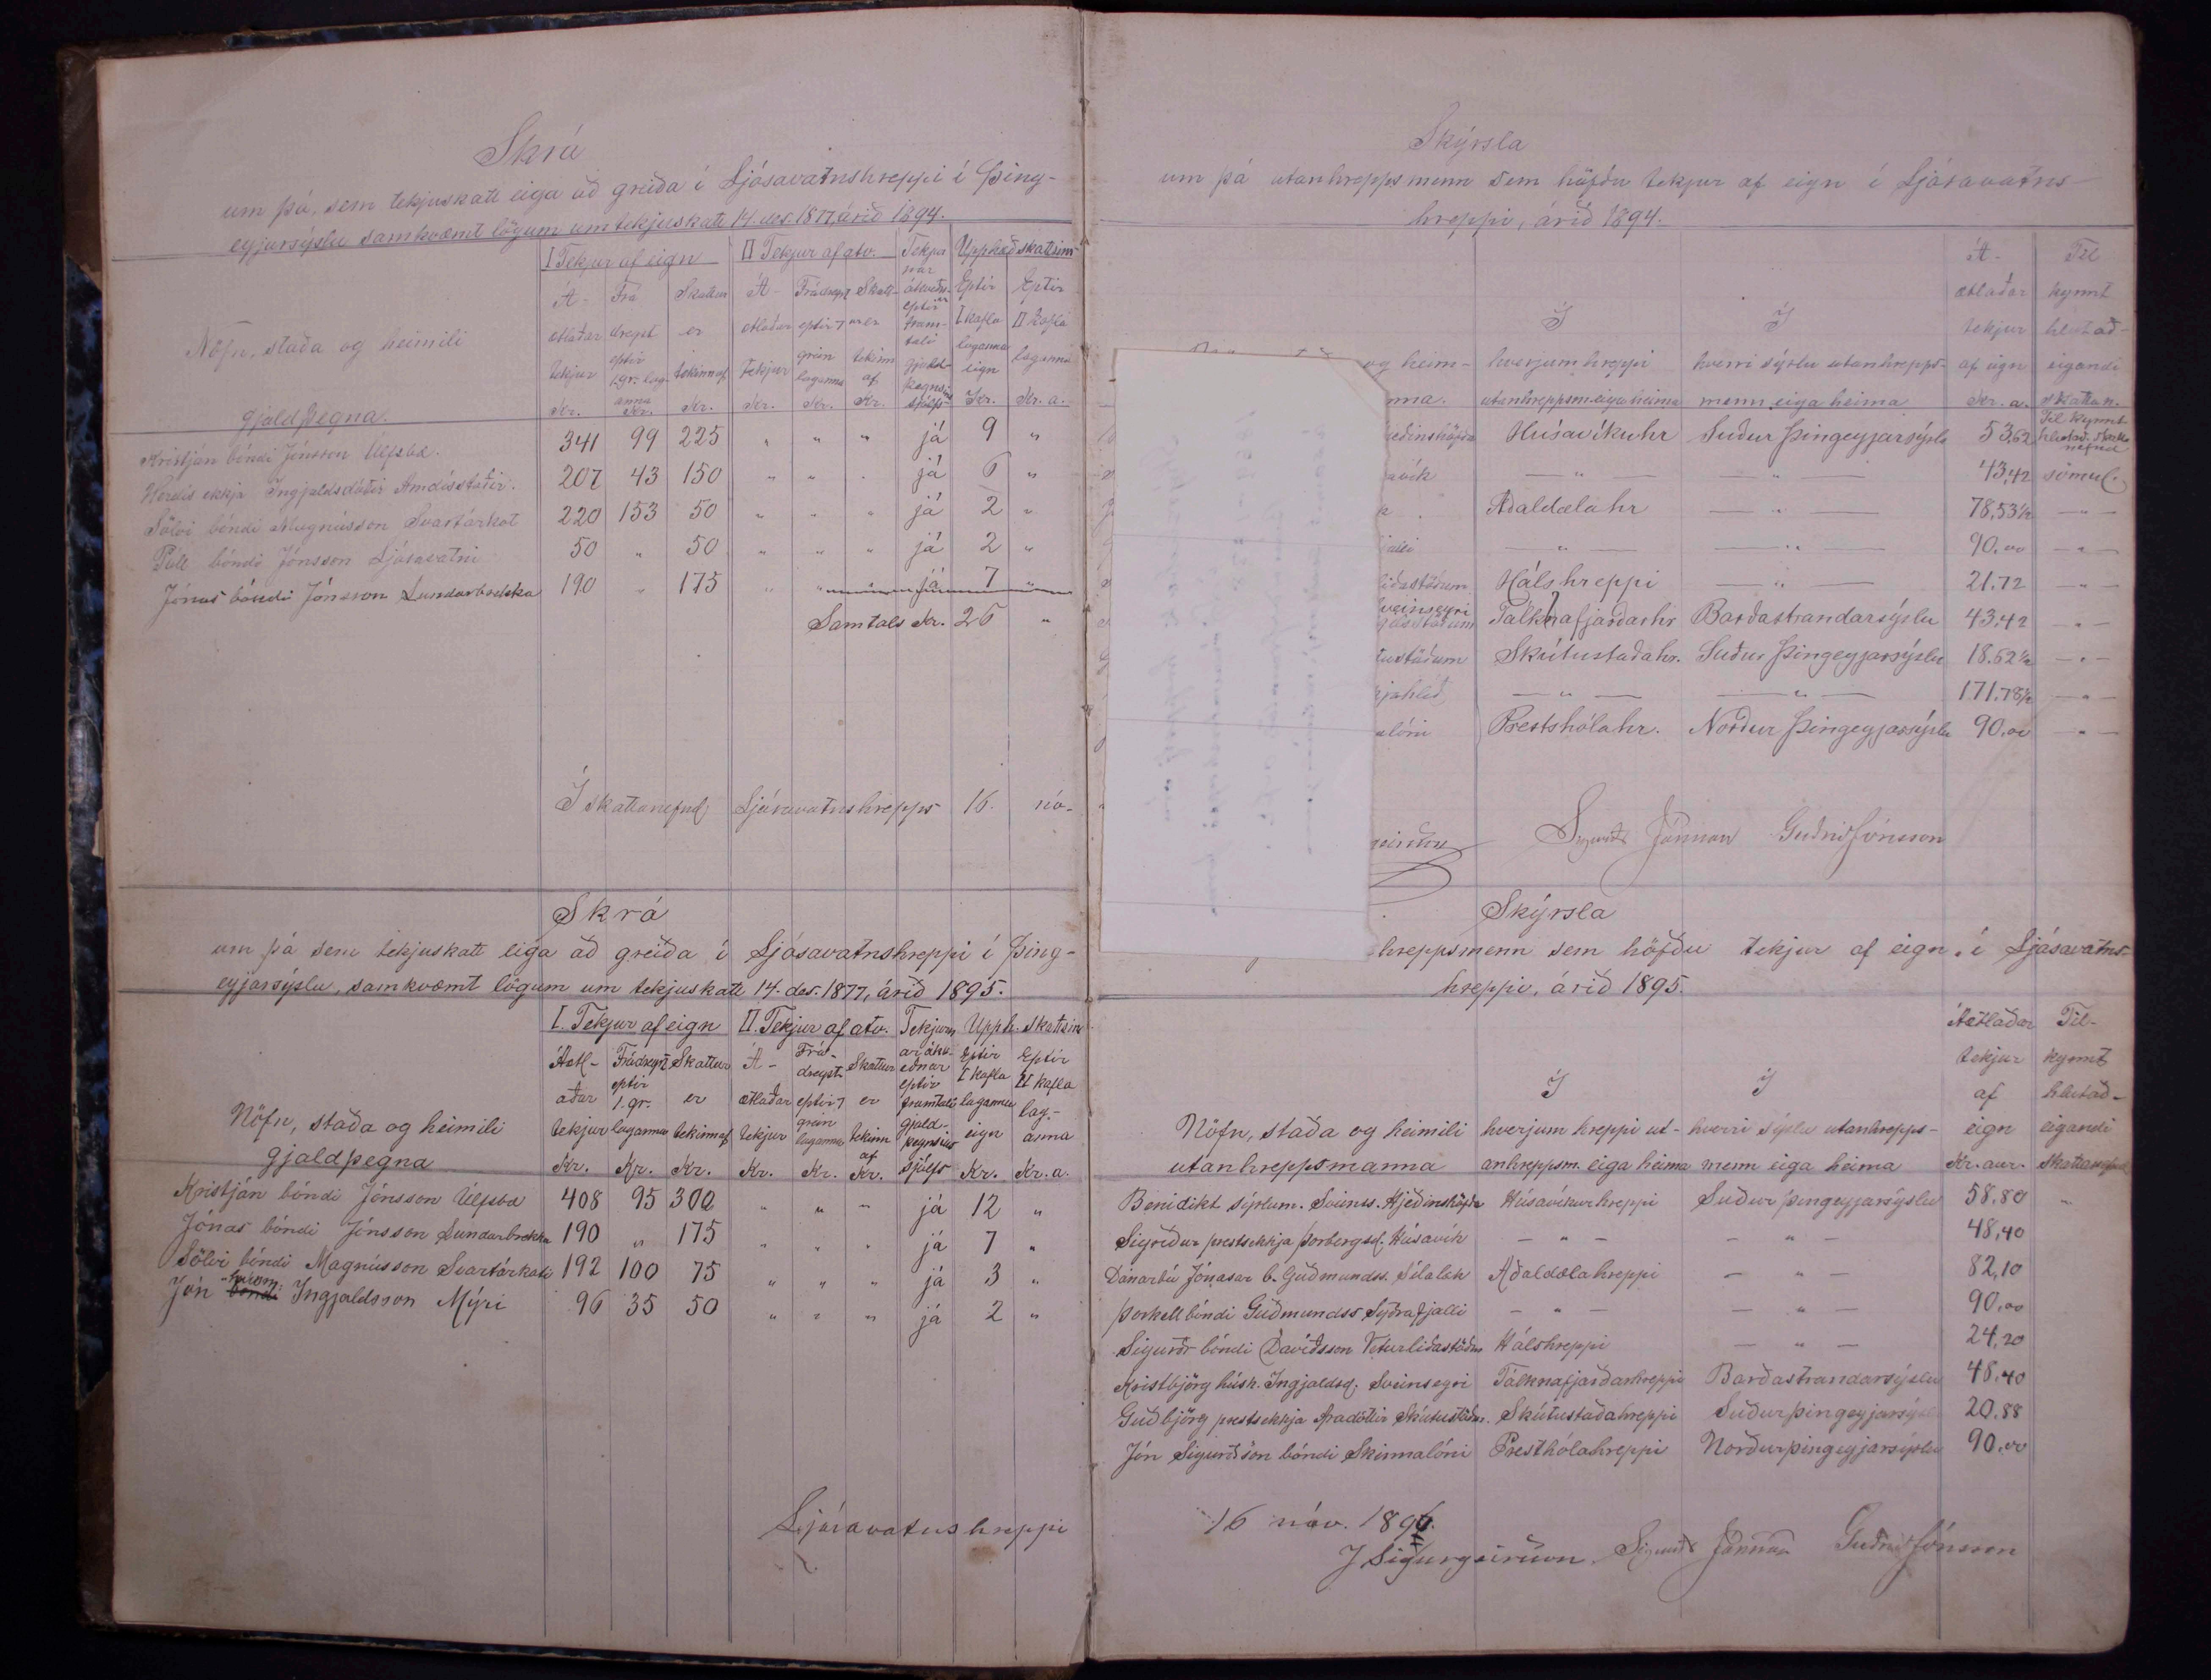 Skrá
um þá, sem tekjuskatt eiga að greiða í Ljósavatnshreppi í Þing-
eyjarsýslu samkvæmt lögum um tekjuskatt 14. des. 1877, árið 1894.
I Tekjur af eign II Tekjur af atv. Tekjur Upphæð skattsins
Nöfn, staða og heimili
gjaldþegna.
Á- ætlaðar tekjur Kr.
Frá dregst eptir 1. gr. lag- anna Kr.
Skattur er tekinn af Kr.
Á- ætlaðar tekjur Kr.
Frádregst eptir 7 grein laganna Kr.
Skatt- ur er tekinn af Kr.
Eptir I kafla laganna eign Kr.
Eptir II kafla laganna Kr. a.
Kristján bóndi Jónsson Úlfsbæ. 341 99 225 " " " já 9 "
Herdís ekkja Ingjaldsdóttir 207 43 150 " " " já 6 "
Sölvi bóndi Magnússon Svartárkot 220 153 50 " " " já 2 "
Páll bóndi Jónsson Ljósavatni 50 " 50 " " " já 2 "
Jónas bóndi Jónsson Lundarbrekka 190 " 175 " " " já 7 "
Samtals Kr. 26 "
Í skattanefnd Ljósavatnshrepps 16. nó-
Skrá
um þá sem tekjuskatt eiga að greiða í Ljósavatnshreppi í Þing-
eyjarsýslu, samkvæmt lögum um tekjuskatt 14. des. 1877, árið 1895.
I. Tekjur af eign II. Tekjur af atv. Tekjurn Upph. skattsins
Nöfn, staða og heimili
gjaldþegna
Áætl- aðar tekjur Kr.
Frádregst eptir 1. gr. laganna Kr.
Skattur er tekinn af Kr.
Á- ætlaðar tekjur Kr.
Frá- dregst eptir 7 grein laganna Kr.
Skattur er tekinn af Kr.
ar ákv- eðnar eptir framtali gjald- þegnsins sjálfs
Eptir I kafla laganna eign Kr.
Eptir II kafla lag- anna Kr. a.
Kristján bóndi Jónsson Úlfsbæ 408 95 300 " " " já 12 "
Jónas bóndi Jónsson Lundarbrekka 190 " 175 " " " já 7 "
Sölvi bóndi Magnússon Svartárkoti 192 100 75 " " " já 3 "
Jón bóndi Ingjaldsson Mýri 96 35 50 " " " já 2 "
Ljósavatnshreppi
Skýrsla
um þá utanhreppsmenn sem höfðu tekjur af eign í Ljósavatns-
hreppi, árið 1894.
og heim-
nna.
Í hverjum hreppi utanhreppsm. eiga heima
Í hverri sýslu utanhrepps- menn eiga heima
Á- ætlaðar tekjur af eign Kr. a.
Til kynnt hlutað- eigandi skattan.
eðinshöfða Húsavíkuhr Suður Þingeyjarsýslu 53,62 Til kynnt hlutað. skatta nefnd
avík — " — — " — 43,42 sömul.
Aðaldælahr — " — 78,53½ — " —
jalli — " — — " — 90.00 — " —
liðastöðum Hálshreppi — " — 21.72 — " —
veinseyri Tálknafjarðarhr Barðastrandarsýslu 43,42 — " —
tustöðum Skútustaðahr. Suður Þingeyjarsýslu 18.62½ — " —
jahlíð — " — — " — 171.78½ — " —
alóni Prestshólahr. Norður Þingeyjarsýslu 90,00 — " —
Sigurður Jónsson Guðni Jónsson
Skýrsla
hreppsmenn sem höfðu tekjur af eign í Ljósavatns-
hreppi, árið 1895.
Nöfn, staða og heimili
utanhreppsmanna
Í hverjum hreppi ut- anhreppsm. eiga heima
Í hverri sýslu utanhrepps- menn eiga heima
Áætlaðar tekjur af eign Kr. aur.
Til- kynnt hlutað- eigandi skattanefnd
Benidikt sýslum. Sveinss. Hjeðinshöfða Húsavíkurhreppi Suður þingeyjarsýslu 58.80 "
Sigríður prestsekkja Þorbergsd. Húsavík — " — — " — 48,40
Dánarbú Jónasar b. Guðmundss. Sílalæk Aðaldælahreppi — " — 82,10
Þorkell bóndi Guðmundss Sýðrafjalli — " — — " — 90.00
Sigurðr bóndi Davíðsson Veturliðastöðum Hálshreppi — " — 24,20
Kristbjörg húsk. Ingjaldsd. Sveinseyri Tálknafjarðarhreppi Barðastrandarsýslu 48,40
Guðbjörg prestsekkja Aradóttir Skútustöðum. Skútustaðahreppi Suðurþingeyjarsýslu 20.88
Jón Sigurðsson bóndi Skinnalóni Presthólahreppi Norðurþingeyjarsýslu 90.00
16 nóv. 1896.
J Sigurgeirsson Sigurðr Jónsson Guðni Jónsson